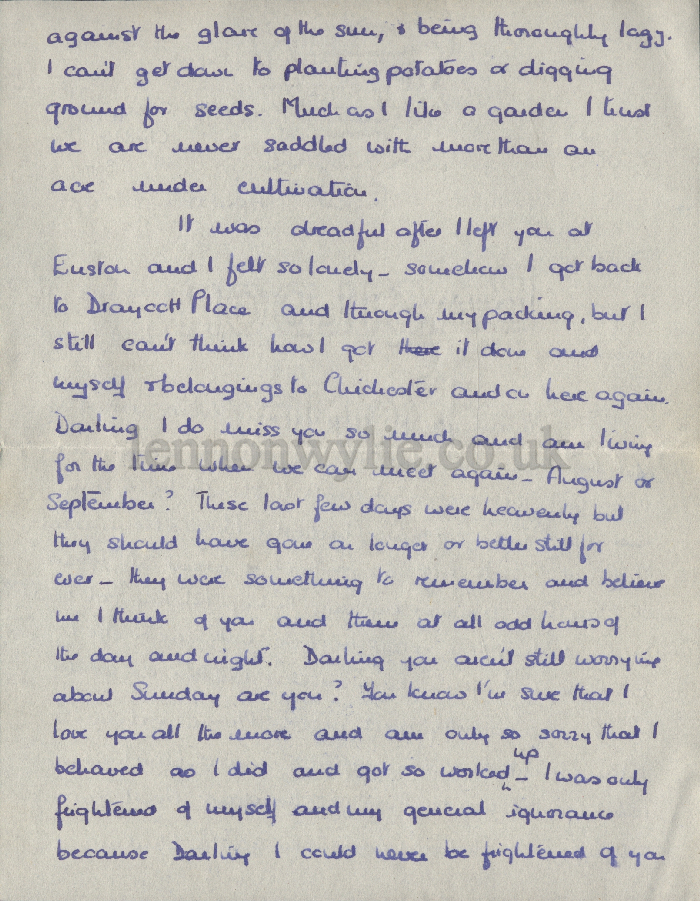 against the glare of the sun, & being thoroughly lazy.
I can't get down to planting potatoes or digging
ground for seeds. Much as I like a garden I trust
we are never saddled with more than an
acre under cultivation.
It was dreadful after I left you at
Euston and I felt so lonely - somehow I got back
to Draycott Place and through my packing, but I
still can't think how I got there it done and
myself & belongings to Chichester and on here again.
Darling I do miss you so much and am living
lennonwylie.co.uk
for the time when we can meet again - August or
September? These last few days were heavenly but
they should have gone on longer or better still for
ever - they were something to remember and believe
me I think of you and them at all odd hours of
the day and night. Darling you aren't still worrying
about Sunday are you? You know I'm sure that I
love you all the more and am only so sorry that I
behaved as I did and got so worked up - I was only
frightened of myself and my general ignorance
because Darling I could never be frightened of you